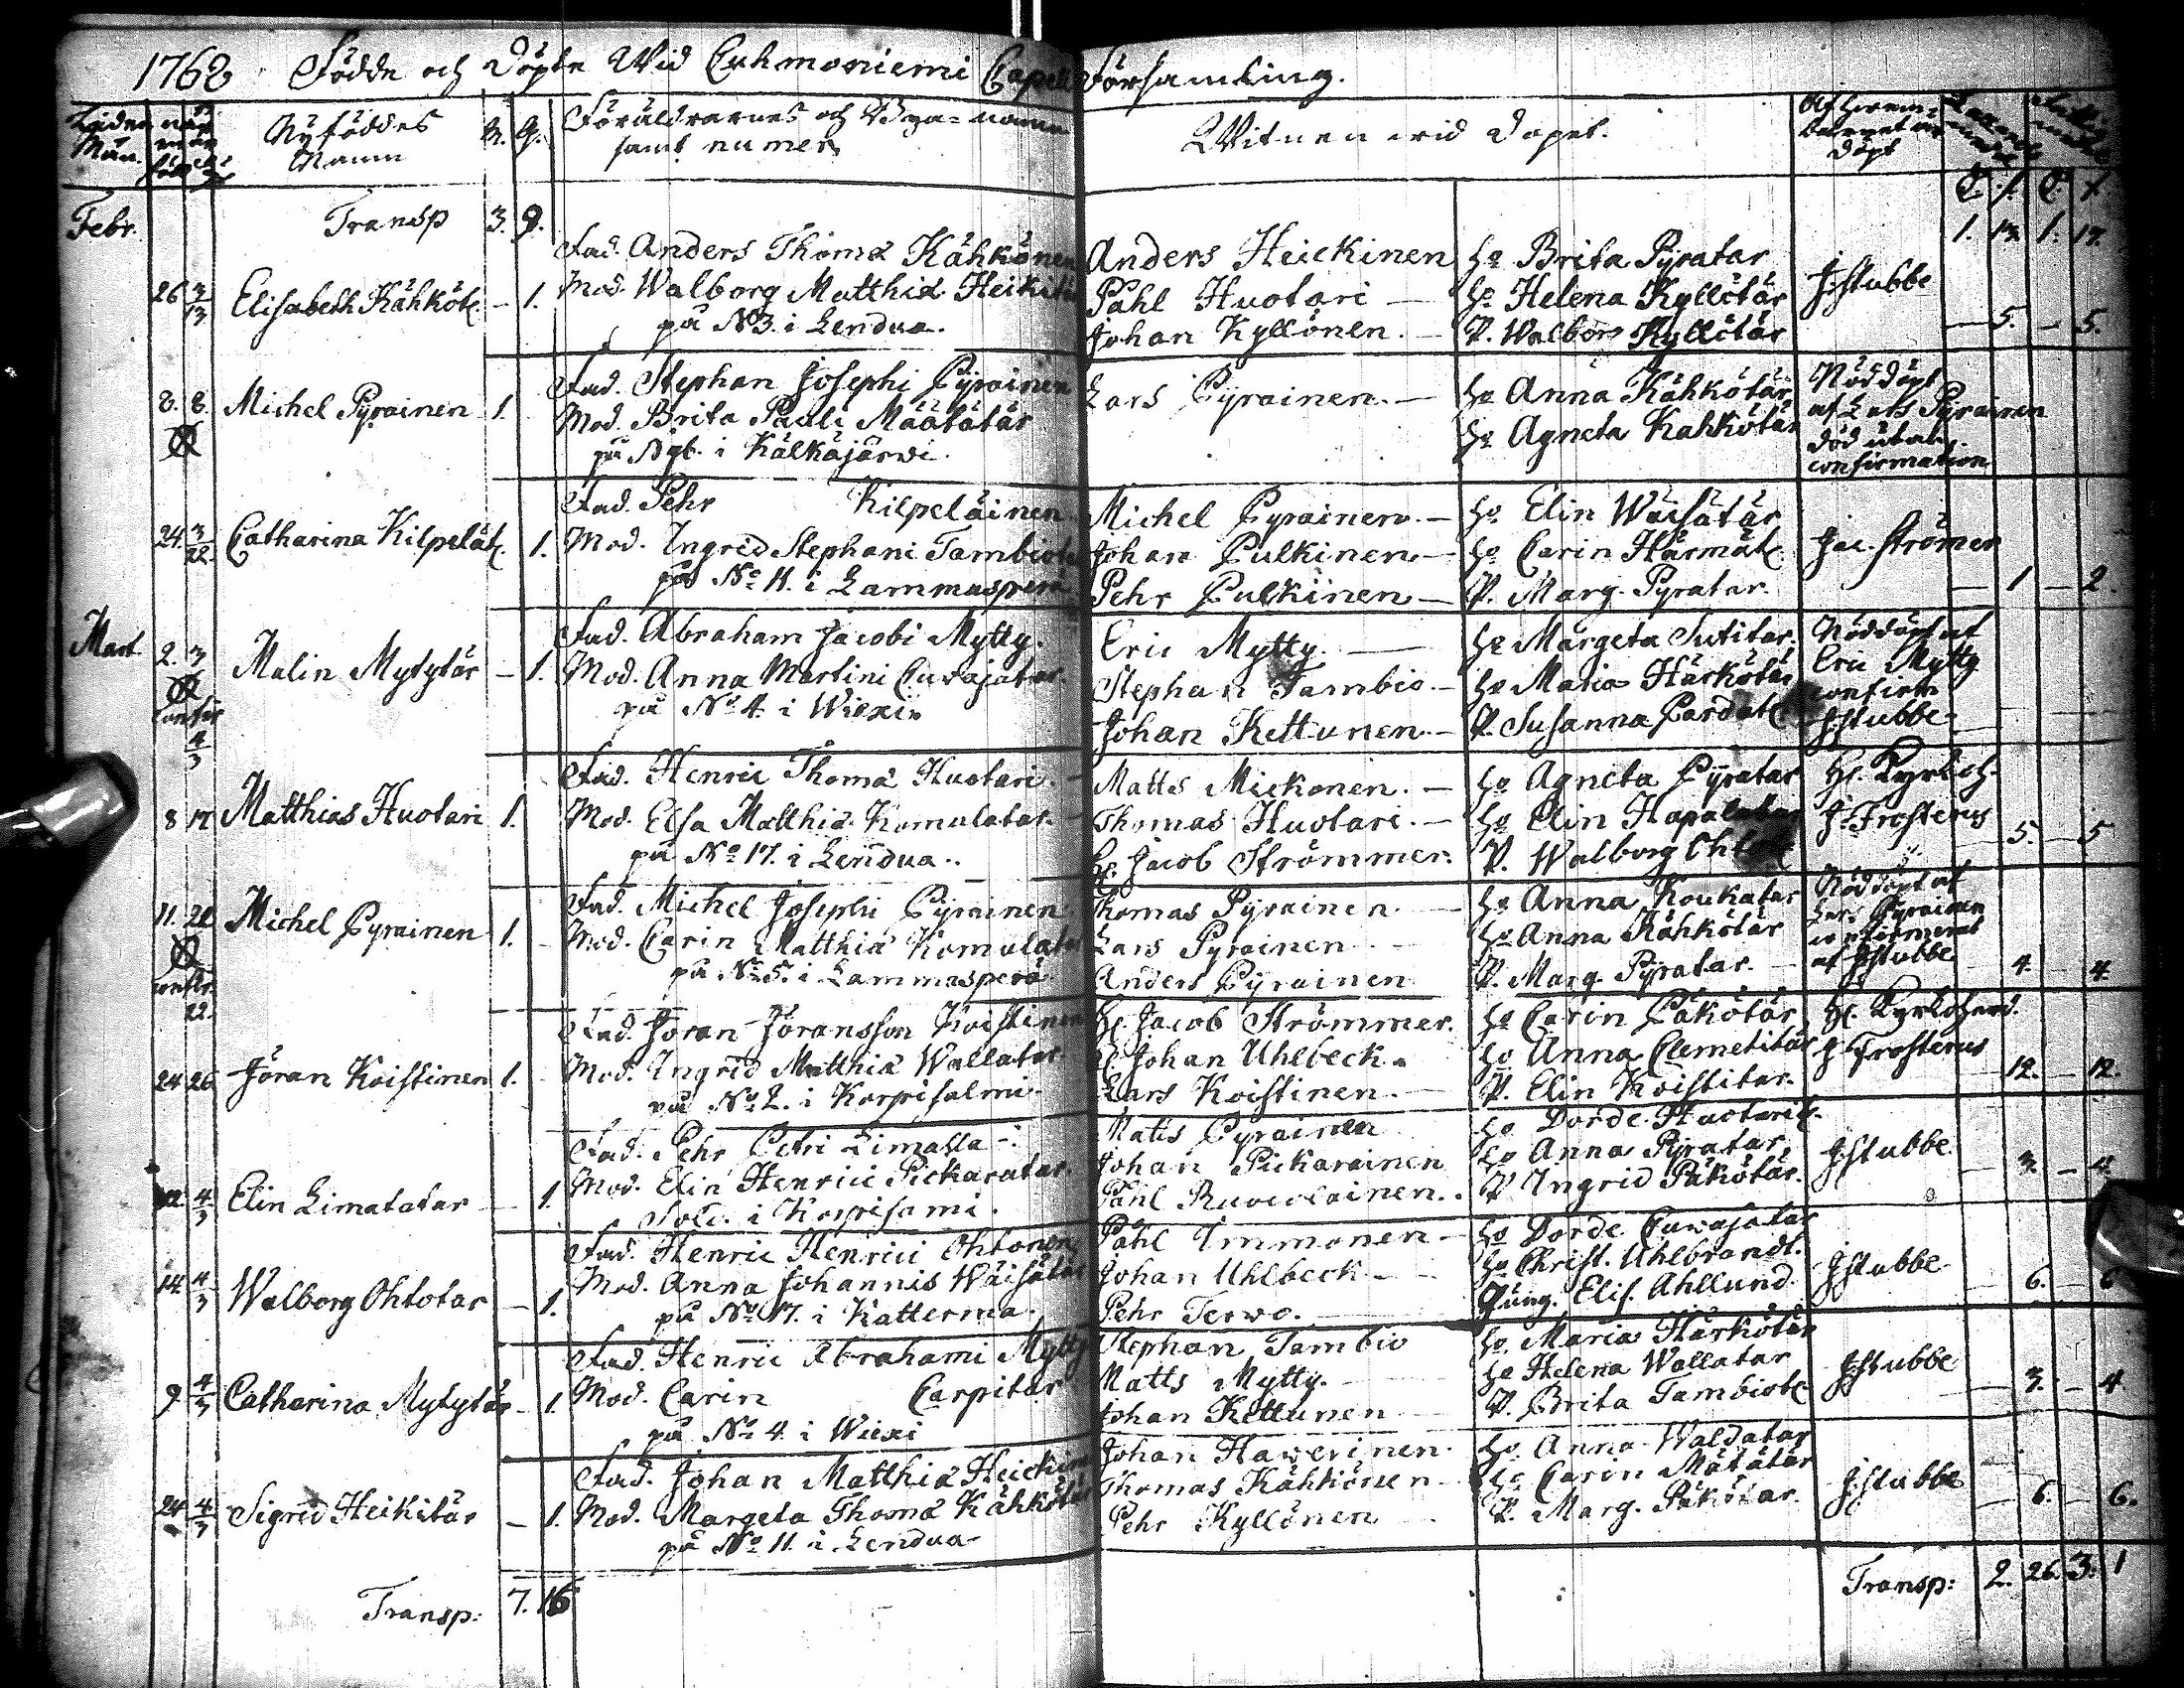 1768 Födde och Döpte Wid Cuhmoniemi Capell Församling.
Nyföddes Namn
M. Q. Föräldrarnes och Bya=namn samt numer
Witnen wid Dopet.
Af hwem barnet är döpt
Febr. Transp 3. 9. 1. 17. 1. 17.
Fad. Anders Thomæ Kähkönen Anders Heickinen Ho Brita Pyratar
26 3/13 Elisabeth Kähköt. - 1. Mod. Walborg Matthiæ Heikitär Påhl Huotari - Ho Helena Kyllötär J. Stubbe
på No 3. i Lendua. Johan Kyllönen. - P. Walborg Kyllötär - 5. - 5.
Fad. Stephan Josephi Pyrainen Lars Pyrainen. - Ho Anna Kähkötär Nöddöpt
8. 8. Michel Pyrainen 1. Mod. Brita Pauli Määtätär Ho Agneta Kähkötär af Lars Pyrainen
på Nyb. i Kälkäjärwi. död utan confirmation
Fad. Pehr Kilpeläinen Michel Pyrainen. - Ho Elin Wäisätär
24. 3/22. Catharina Kilpelät. 1. Mod. Ingrid Stephani Tambiot Johan Pulkinen - Ho Carin Härmät. Jac. Strömer
på No 11. i Lammasperä Pehr Pulkinen - P. Marg. Pyratar. - 1 - 2.
Mart. Fad. Abraham Jacobi Mytty. Eric Mytty. - Ho Margeta Sutitar. Nöddöpt af
2. 3 Malin Mytytär - 1. Mod. Anna Martini Cuwajatar. Stephan Tambio. - Ho Maria Härkötär Eric Mytty
confir 4/3 på No 4. i Wiexi Johan Kettunen. - P. Susanna Pardat. confirm J. Stubbe
Fad. Henric Thomæ Huotari. Matts Mickonen. - Ho Agneta Pyratar Hr. Kyrkoh.
8 17 Matthias Huotari 1. Mod. Elsa Matthiæ Komulatar. Thomas Huotari. - Ho Elin Hapalatar J. Frosterus
på No 17. i Lendua. Hr. Jacob Strömmer. P. Walborg - 5. - 5
Fad. Michel Josephi Pyrainen Thomas Pyrainen. Ho Anna Koukatar Nöddöpt af
11. 21 Michel Pyrainen 1. Mod. Carin Matthiæ Komulatar Lars Pyrainen Ho Anna Kähkötär Lars Pyrainen confirmerat
confir. 22. på No 5. i Lammasperä Anders Pyrainen P. Marg. Pyratar. af J. Stubbe - 4. - 4.
Fad. Jöran Jöransson Koistinen Hr. Jacob Strömmer. Ho Carin Päkötär Hr. Kyrkoherd.
24 26 Jöran Koistinen 1. Mod. Ingrid Matthiæ Wallatar Hr. Johan Uhlbeck. Ho Anna Clemetitär J. Frosterus
på No 2. i Korpisalmi. Lars Koistinen. P. Elin Koistitar. - 12. - 12.
Fad. Pehr Petri Limatta Matts Pyrainen Ho Dorde Huotarit.
12 4/3 Elin Limatatar - 1. Mod. Elin Henrici Pickaratar. Johan Pickarainen Ho Anna Pyratar J. Stubbe
Sold. i Korpisami. Påhl P Ingrid Päkötär. - 3. - 4.
Fad. Henric Henrici Ohtonen Påhl Immonen - Ho Dorde Cuwajatar
14. 4/3 Walborg Ohtotar - 1. Mod. Anna Johannis Wäisätär Johan Uhlbeck - Ho Christ. Uhlbrandt. J. Stubbe
på No 17. i Katterma. Pehr Terwo. Jung. Elis. Ahllund. - 6. - 6
Fad. Henric Abrahami Mytty Stephan Tambio Ho. Maria Härkötär
9 4/3 Catharina Mytytär - 1. Mod. Carin Carpitar Matts Mytty. Ho Helena Wallatar J. Stubbe
på No 4. i Wiexi Johan Kettunen P. Brita Tambiot. - 3. - 4.
Fad. Johan Matthiæ Heickinen Johan Hawerinen. Ho Anna Waldatar
24 4/3 Sigrid Heikitär - 1. Mod. Margeta Thomæ Kähkötär Thomas Kähkönen Ho Carin Mätätär J. Stubbe
på No 11. i Lendua Pehr Kyllönen P. Marg. Päkötar. - 6. - 6.
Transp: 7. 16 Transp: 2. 26. 3. 1